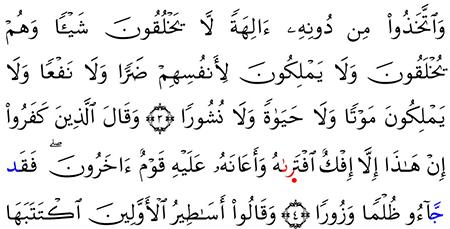 وَٱتَّخَذُوا۟ مِن دُونِهِۦٓ ءَالِهَةً لَّا يَخْلُقُونَ شَيْـًٔا وَهُمْ
يُخْلَقُونَ وَلَا يَمْلِكُونَ لِأَنفُسِهِمْ ضَرًّا وَلَا نَفْعًا وَلَا
يَمْلِكُونَ مَوْتًا وَلَا حَيَوٰةً وَلَا نُشُورًا ﴿٣﴾ وَقَالَ ٱلَّذِينَ كَفَرُوٓا۟
إِنْ هَـٰذَآ إِلَّآ إِفْكٌ ٱفْتَرٜىٰهُ وَأَعَانَهُۥ عَلَيْهِ قَوْمٌ ءَاخَرُونَ ۖ فَقَد
جَّآءُو ظُلْمًا وَزُورًا ﴿٤﴾ وَقَالُوٓا۟ أَسَـٰطِيرُ ٱلْأَوَّلِينَ ٱكْتَتَبَهَا